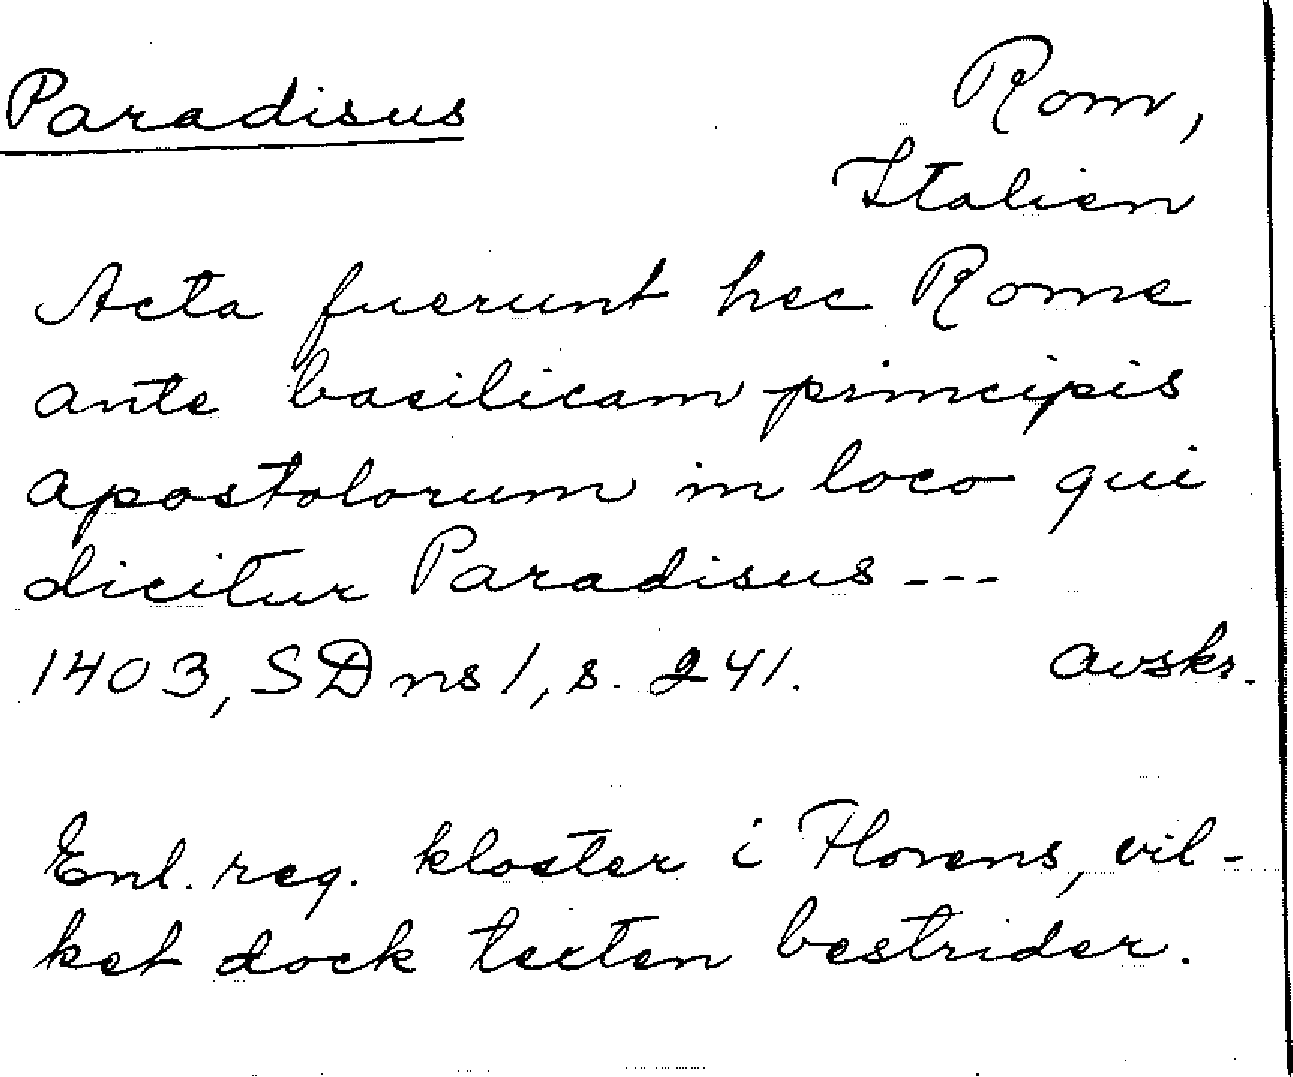 Paradisus
Rom,
Italien
Acta fuerunt hec Rome
ante basilicam principis
apostolorum in loco qui
dicitur Paradisus ---
1403, SD ns 1, s. 241. avskr.
Enl. reg. kloster i Florens, vil-
ket dock texten bestrider.